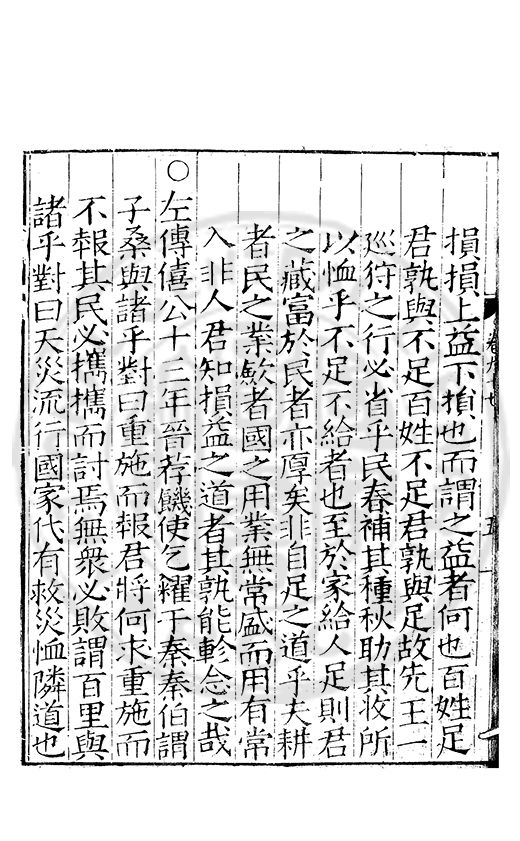 損損上益下損也而謂之益者何也百姓足
君孰與不足百姓不足君孰與足故先王一
廵狩之行必省乎民春補其種秋助其收所
以恤乎不足不給者也至於家給人足則君
之藏富於民者亦厚矣非自足之道乎夫耕
者民之業斂者國之用業無常盛而用有常
入非人君知損益之道者其孰能軫念之哉
○左傳僖公十三年晉荐饑使乞糴于秦秦伯謂
子桑與諸乎對曰重施而報君將何求重施而
不報其民必攜攜而討焉無衆必敗謂百里與
諸乎對曰天災流行國家代有救災恤隣道也